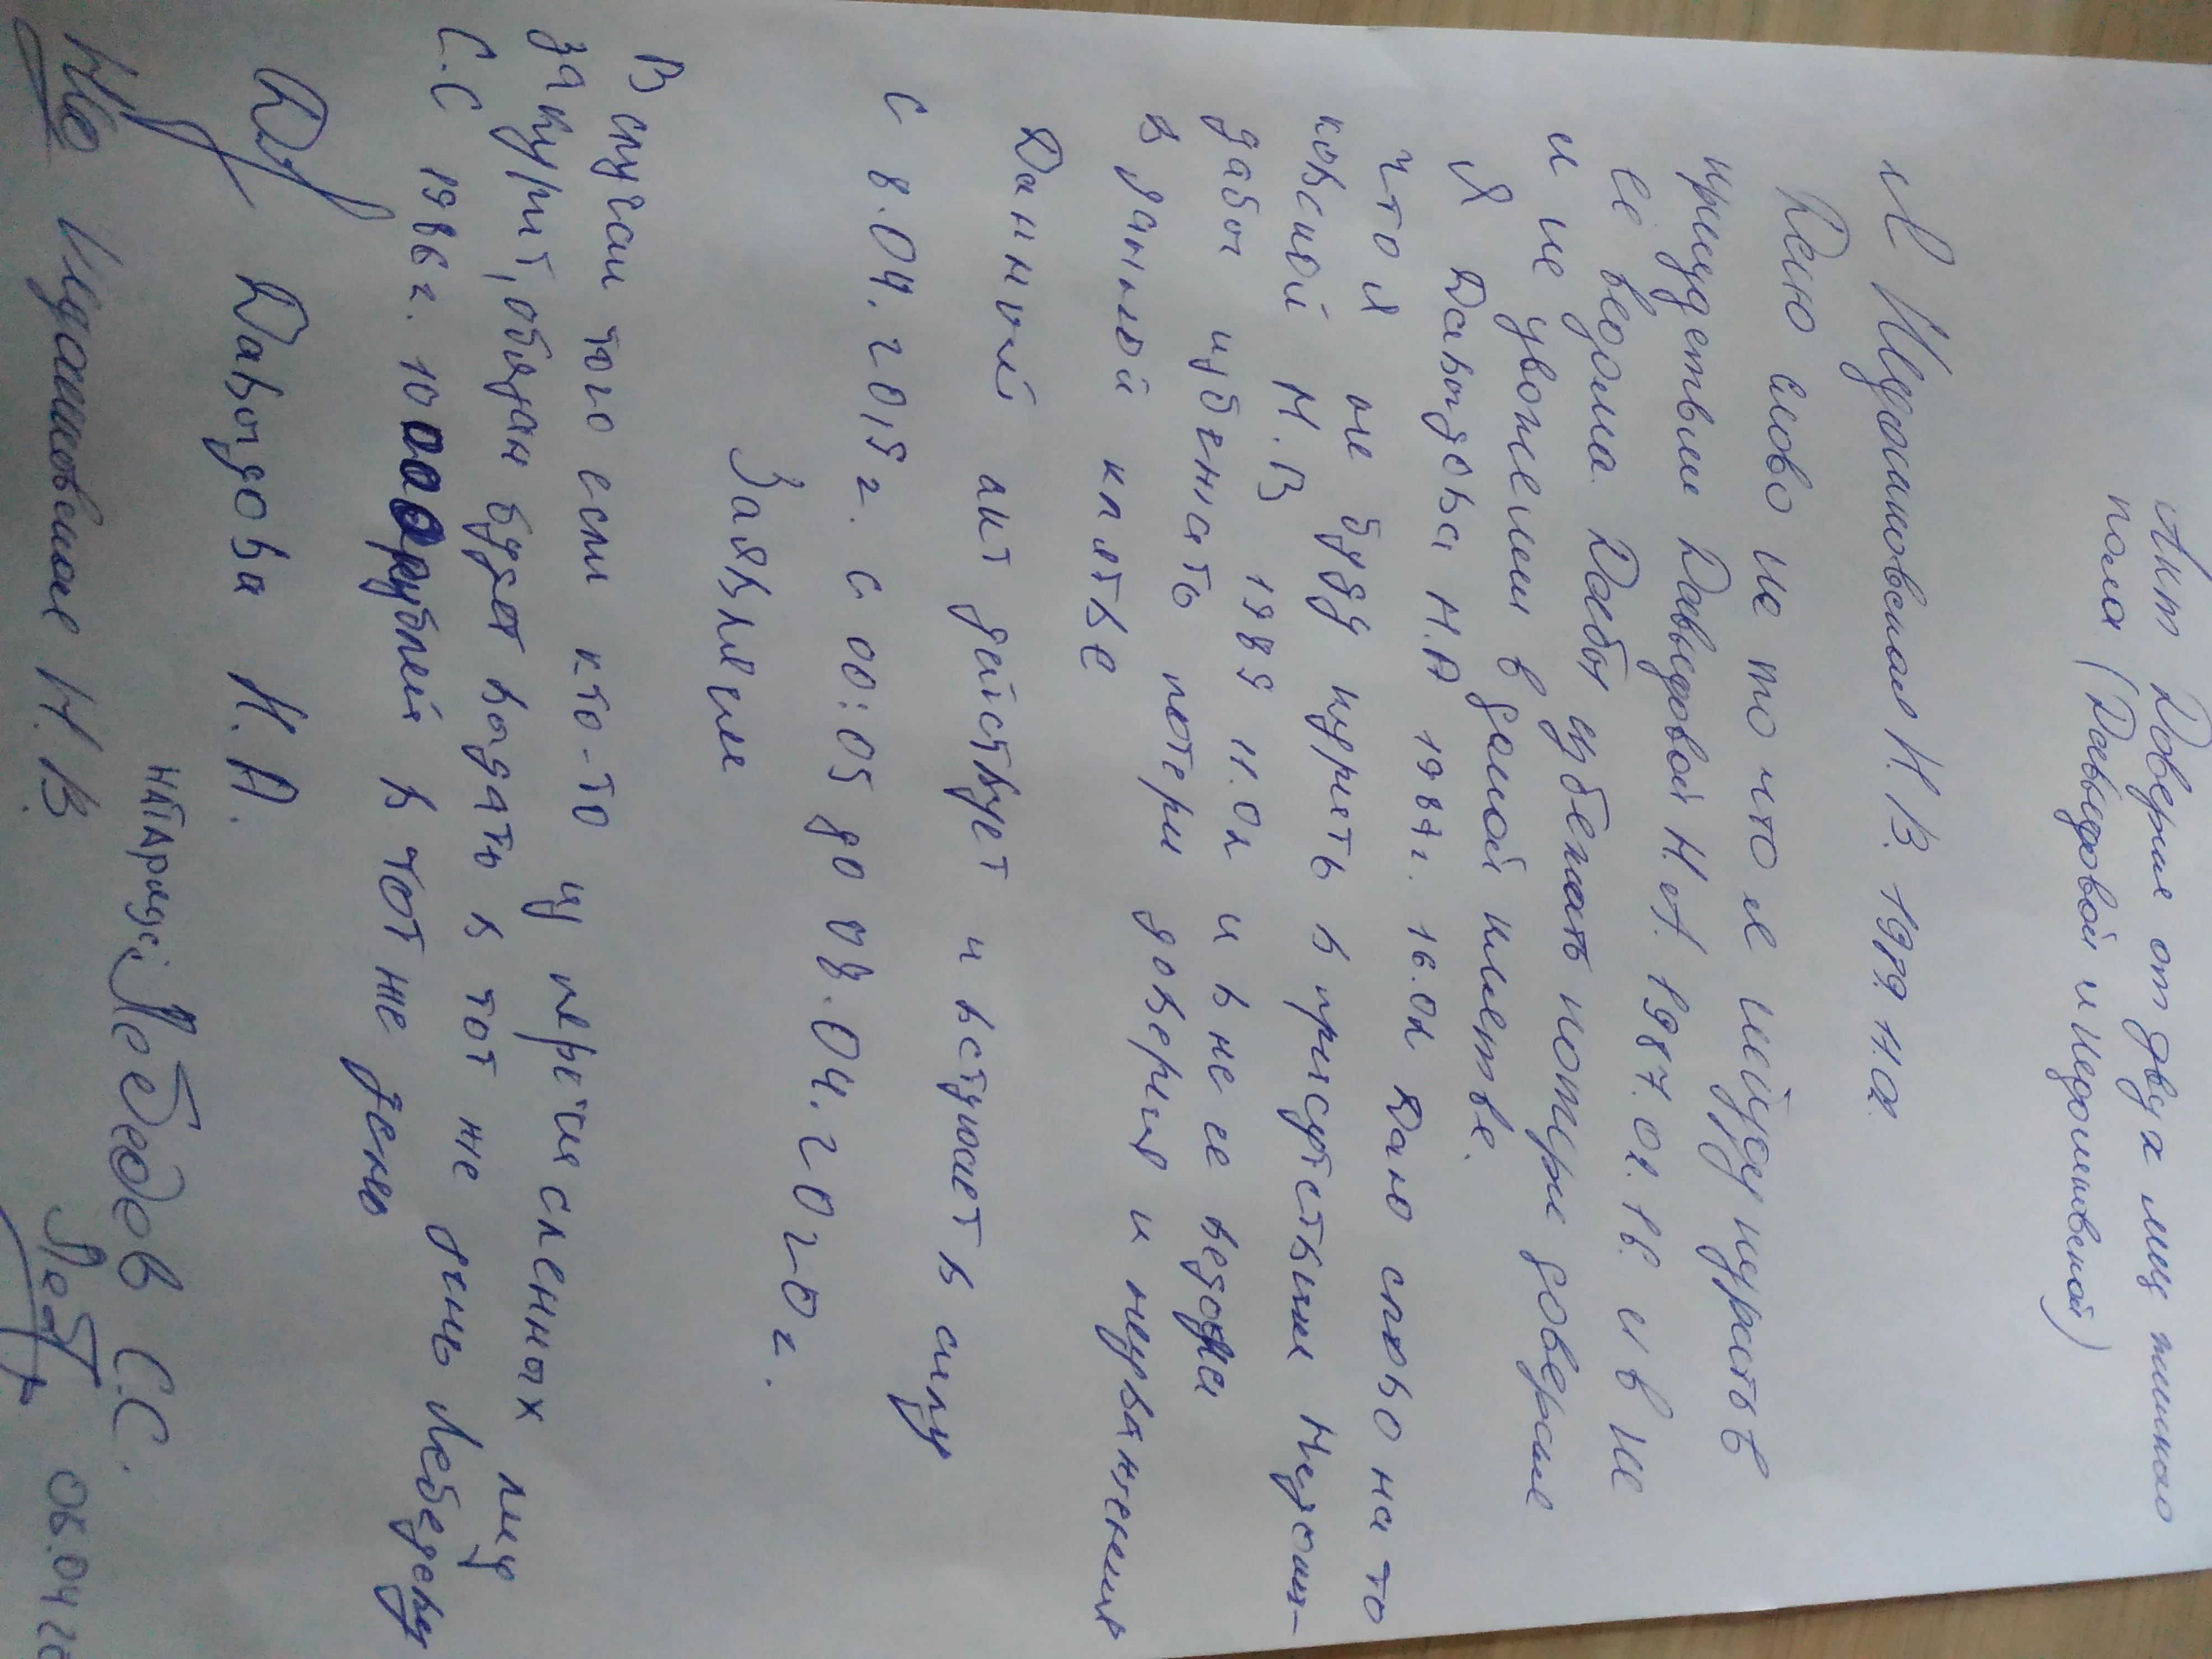 Акт Доверия от двух лиц женского
пола (Даведовой и Недошивеной)
Я Недошивеная Н.В. 1989 11.01.
Даю слово на то что я не буду курить в
присудствии Даведовой Н.А. 1987.01.16. и в не
её ведома. Дабы избежать потери доверие
и не уважении в данной клятве.
Я Давыдова Н.А 1987г. 16.01 Даю слово на то
что я не буду курить в присутствии Недоши-
ковской Н.В 1989 11.01 и в не ее ведома
дабы избежать потери доверия и неуважения
в данной клятве
Данный акт действует и вступает в силу
с 8.04.2019г. с 00:05 до 08.04.2020г.
Заявление
В случаи того если кто-то из перечисленных лиц
закурит, обязан будет выдать в тот же день Лебедеву
С.С 1986г. 10000 рублей в тот же день
Давыдова Н.А.
НАТАРИУС: Лебедев С.С.
Не Недошивеная Н.В. Леб 08.04.20